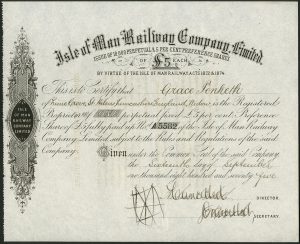 Isle of Man Railway Company, Limited.
ISSUE OF 10,000 PERPETUAL £5 PER CENT PREFERENCE SHARES
OF £5 EACH,
BY VIRTUE OF THE ISLE OF MAN RAILWAY ACTS 1872 & 1874.
This is to Certify that Grace Penketh
of England, Widow is the Registered
Proprietor of perpetual fixed £5 per cent Preference
Share of £5 fully paid up No. A5582 of the Isle of Man Railway
Company, Limited, subject to the Rules and Regulations of the said
Company.
Given under the Common Seal of the said Company
the Sixteenth day of September
one thousand eight hundred and seventy five
DIRECTOR.
SECRETARY.
ISLE OF MAN
RAILWAY
COMPANY
LIMITED